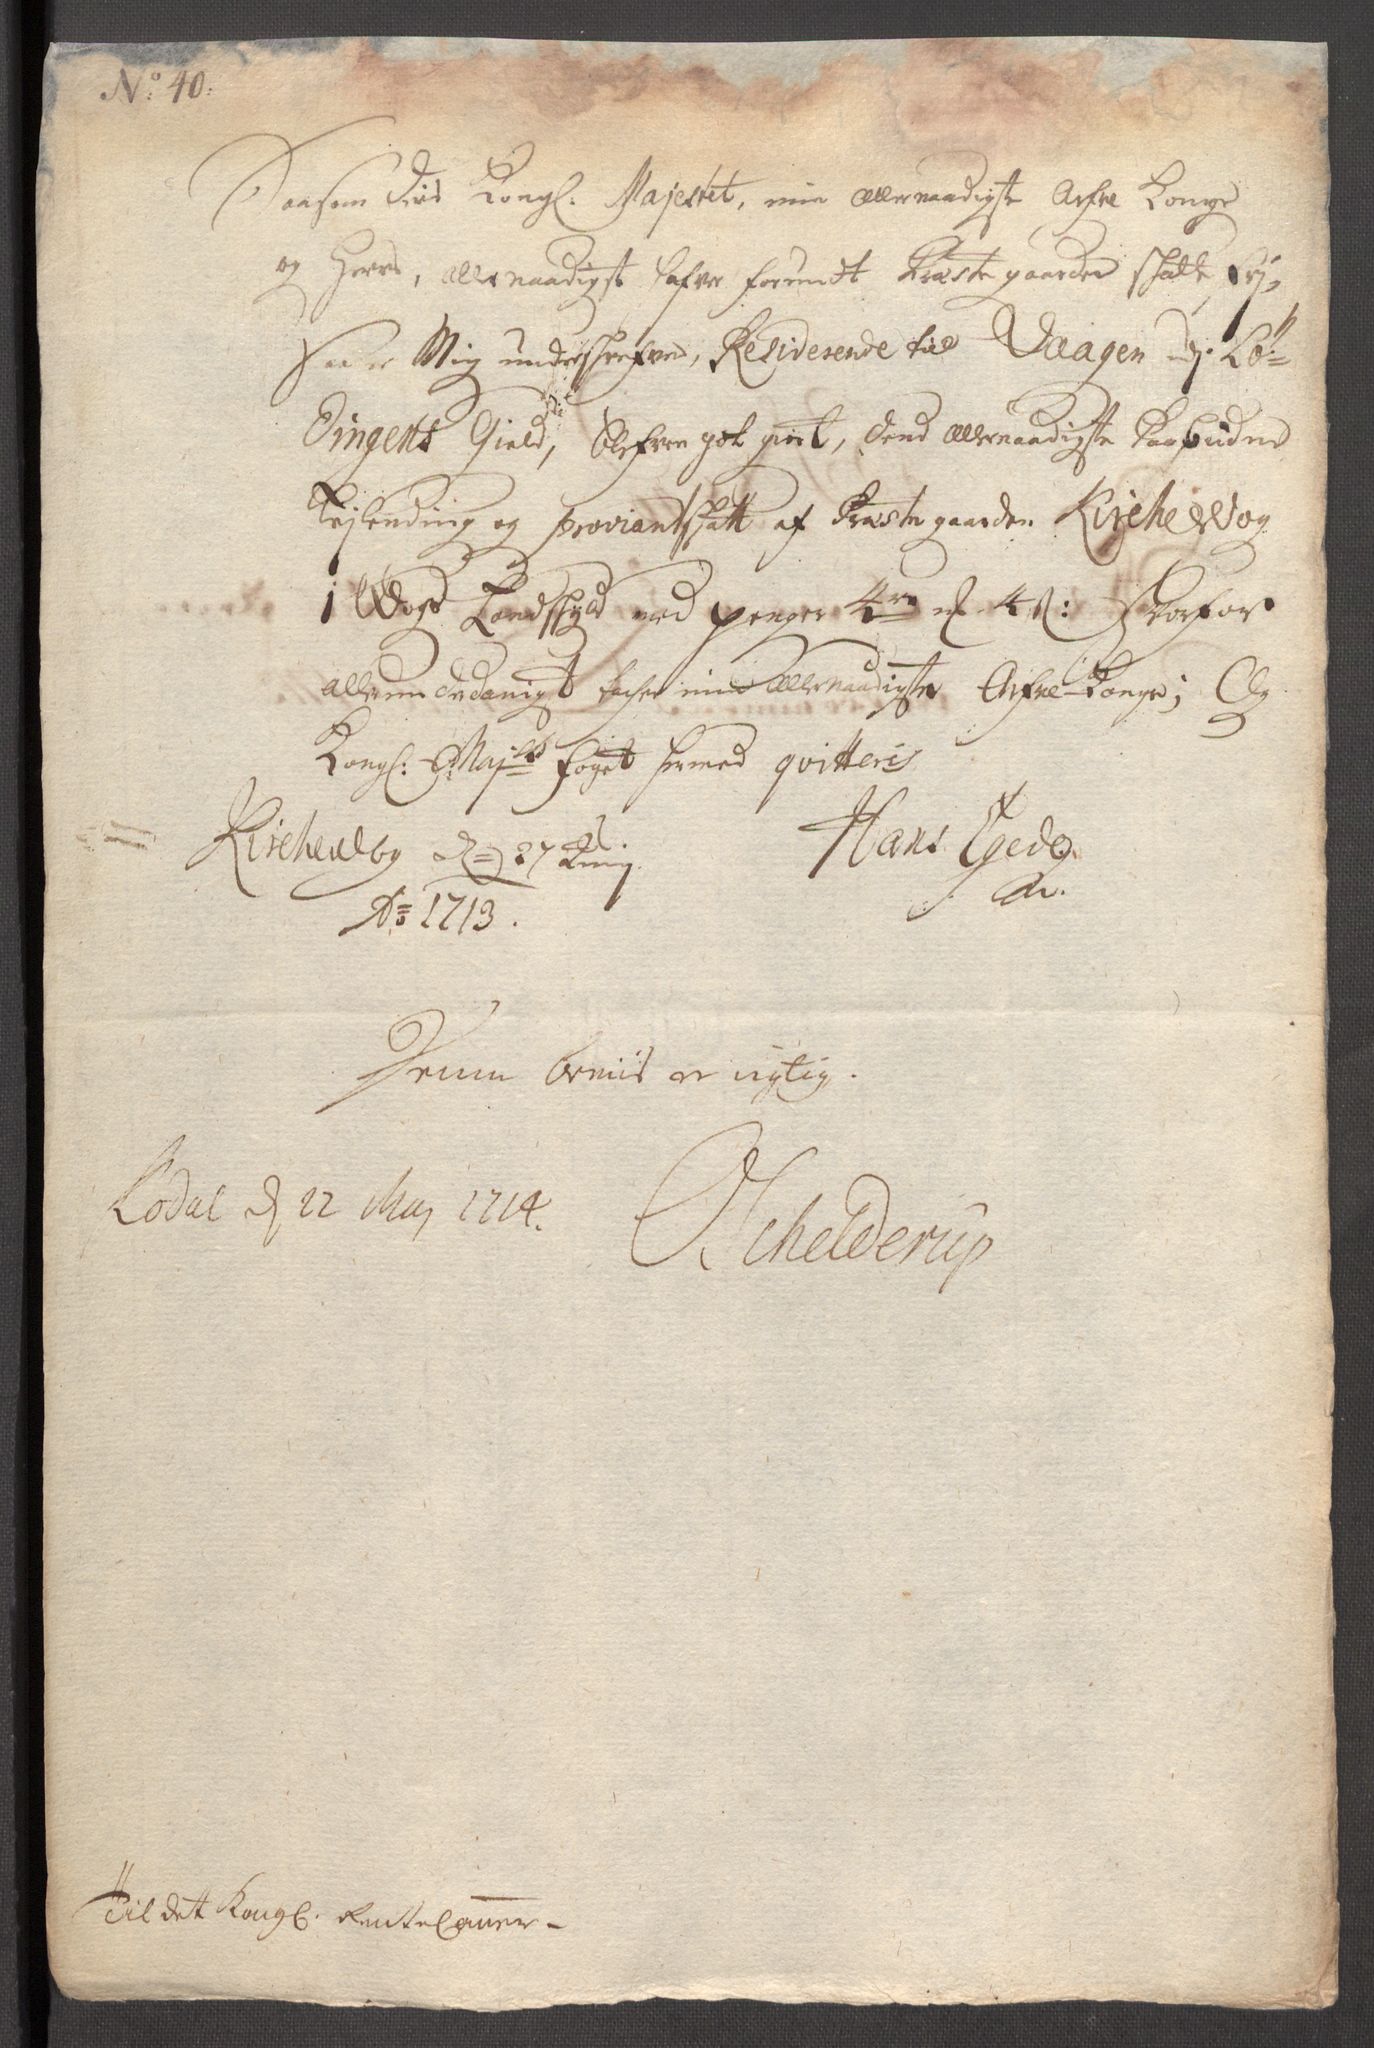 No: 40:
Saasom Deris Kongl: Majestet, min allernaadigste Arfve Konge
og Herre, allernaadigst hafver forundt Præstegaarden Skatte frj,
Saa er Mig underschrefven, Residerende til Vaagen udj Lö-
Dingens Gield, blefven got giort, dend allernaadigste paabudne
Lejlending og proviantskatt af Præstegaarden Kirchevog
i Wogs Landschyld med penger 4 rd 4 s: Hvorfor
allerunderdanigst tacher min allernaadigste Arfve-Konge; Og
Kongl: Majts foget hermed qvitteris
Kirchevog d 27 Junij
Ao 1713.
Hans Egede
Denne bevis er rigtig.
Lodal d 22 Maj 1714.
Schelderup
Til dett Kongl: Rente Cammer